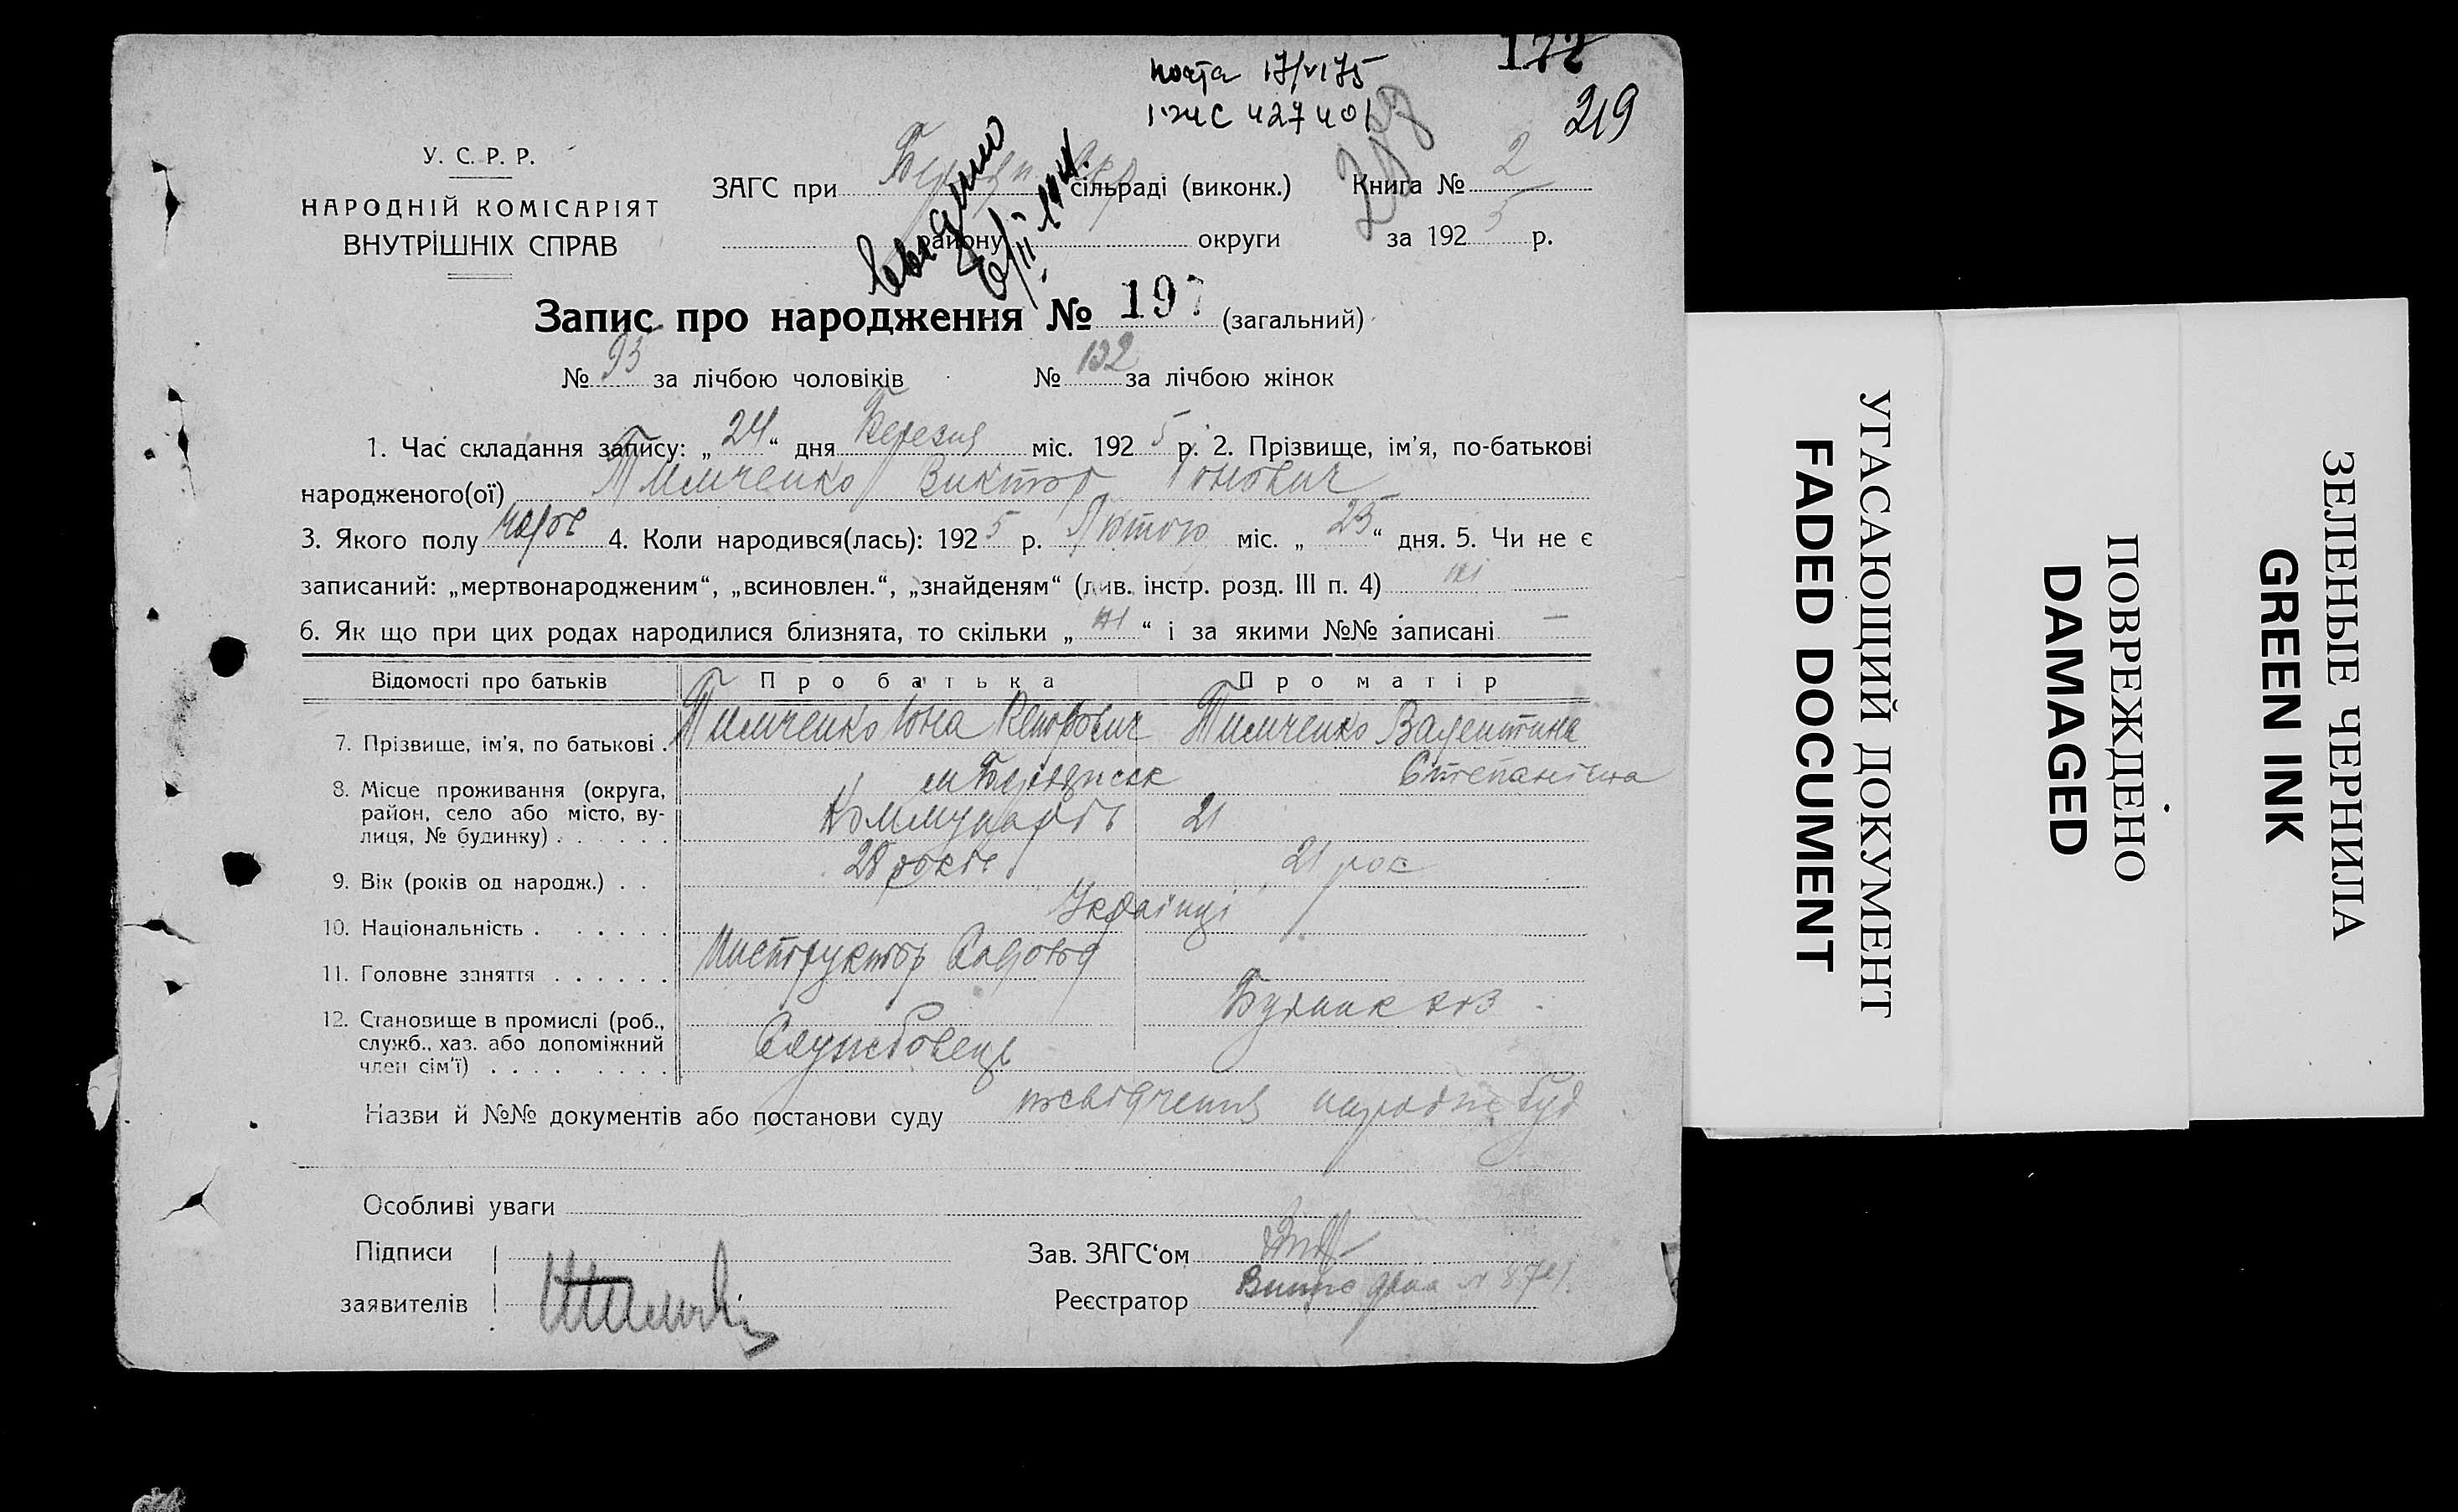 172
почта 17/VI 75
427401
219
У. С. Р. Р.
НАРОДНІЙ КОМІСАРІЯТ
ВНУТРІШНІХ СПРАВ
ЗАГС при сільраді (виконк.) Книга № 2
району округи за 1925 р.
Запис про народження № 197 (загальний)
№ 93 за лічбою чоловіків № 132 за лічбою жінок
1. Час складання запису: „24“ дня Березня міс. 1925 р. 2. Прізвище, ім'я, по-батькові
народженого(ої) Тимченко Виктор Іонович
3. Якого полу 4. Коли народився(лась): 1925 р. Лютого міс. „25“ дня. 5. Чи не є
записаний: „мертвонародженим“, „всиновлен.“, „знайденям“ (див. інстр. розд. III п. 4) ні
6. Як що при цих родах народилися близнята, то скільки „ні“ і за якими №№ записані —
Відомості про батьків Про батька Про матір
7. Прізвище, ім'я, по батькові . Тимченко Іона Тимченко Валентина
Степанівна
8. Місце проживання (округа, район, село або місто, вулиця, № будинку) . . . . . . м Бердянськ
21
9. Вік (років од народж.) . . 28 років 21 рок
10. Національність . . . . . . Українці
11. Головне заняття . . . . . . Инструктор
12. Становище в промислі (роб., служб., хаз. або допоміжний член сім'ї) . . . . . . . . Службовець
Назви й №№ документів або постанови суду посвідчення
Особливі уваги
Підписи Зав. ЗАГС'ом
заявителів Реєстратор
УГАСАЮЩИЙ ДОКУМЕНТ
FADED DOCUMENT
ПОВРЕЖДЕНО
DAMAGED
ЗЕЛЕНЫЕ ЧЕРНИЛА
GREEN INK